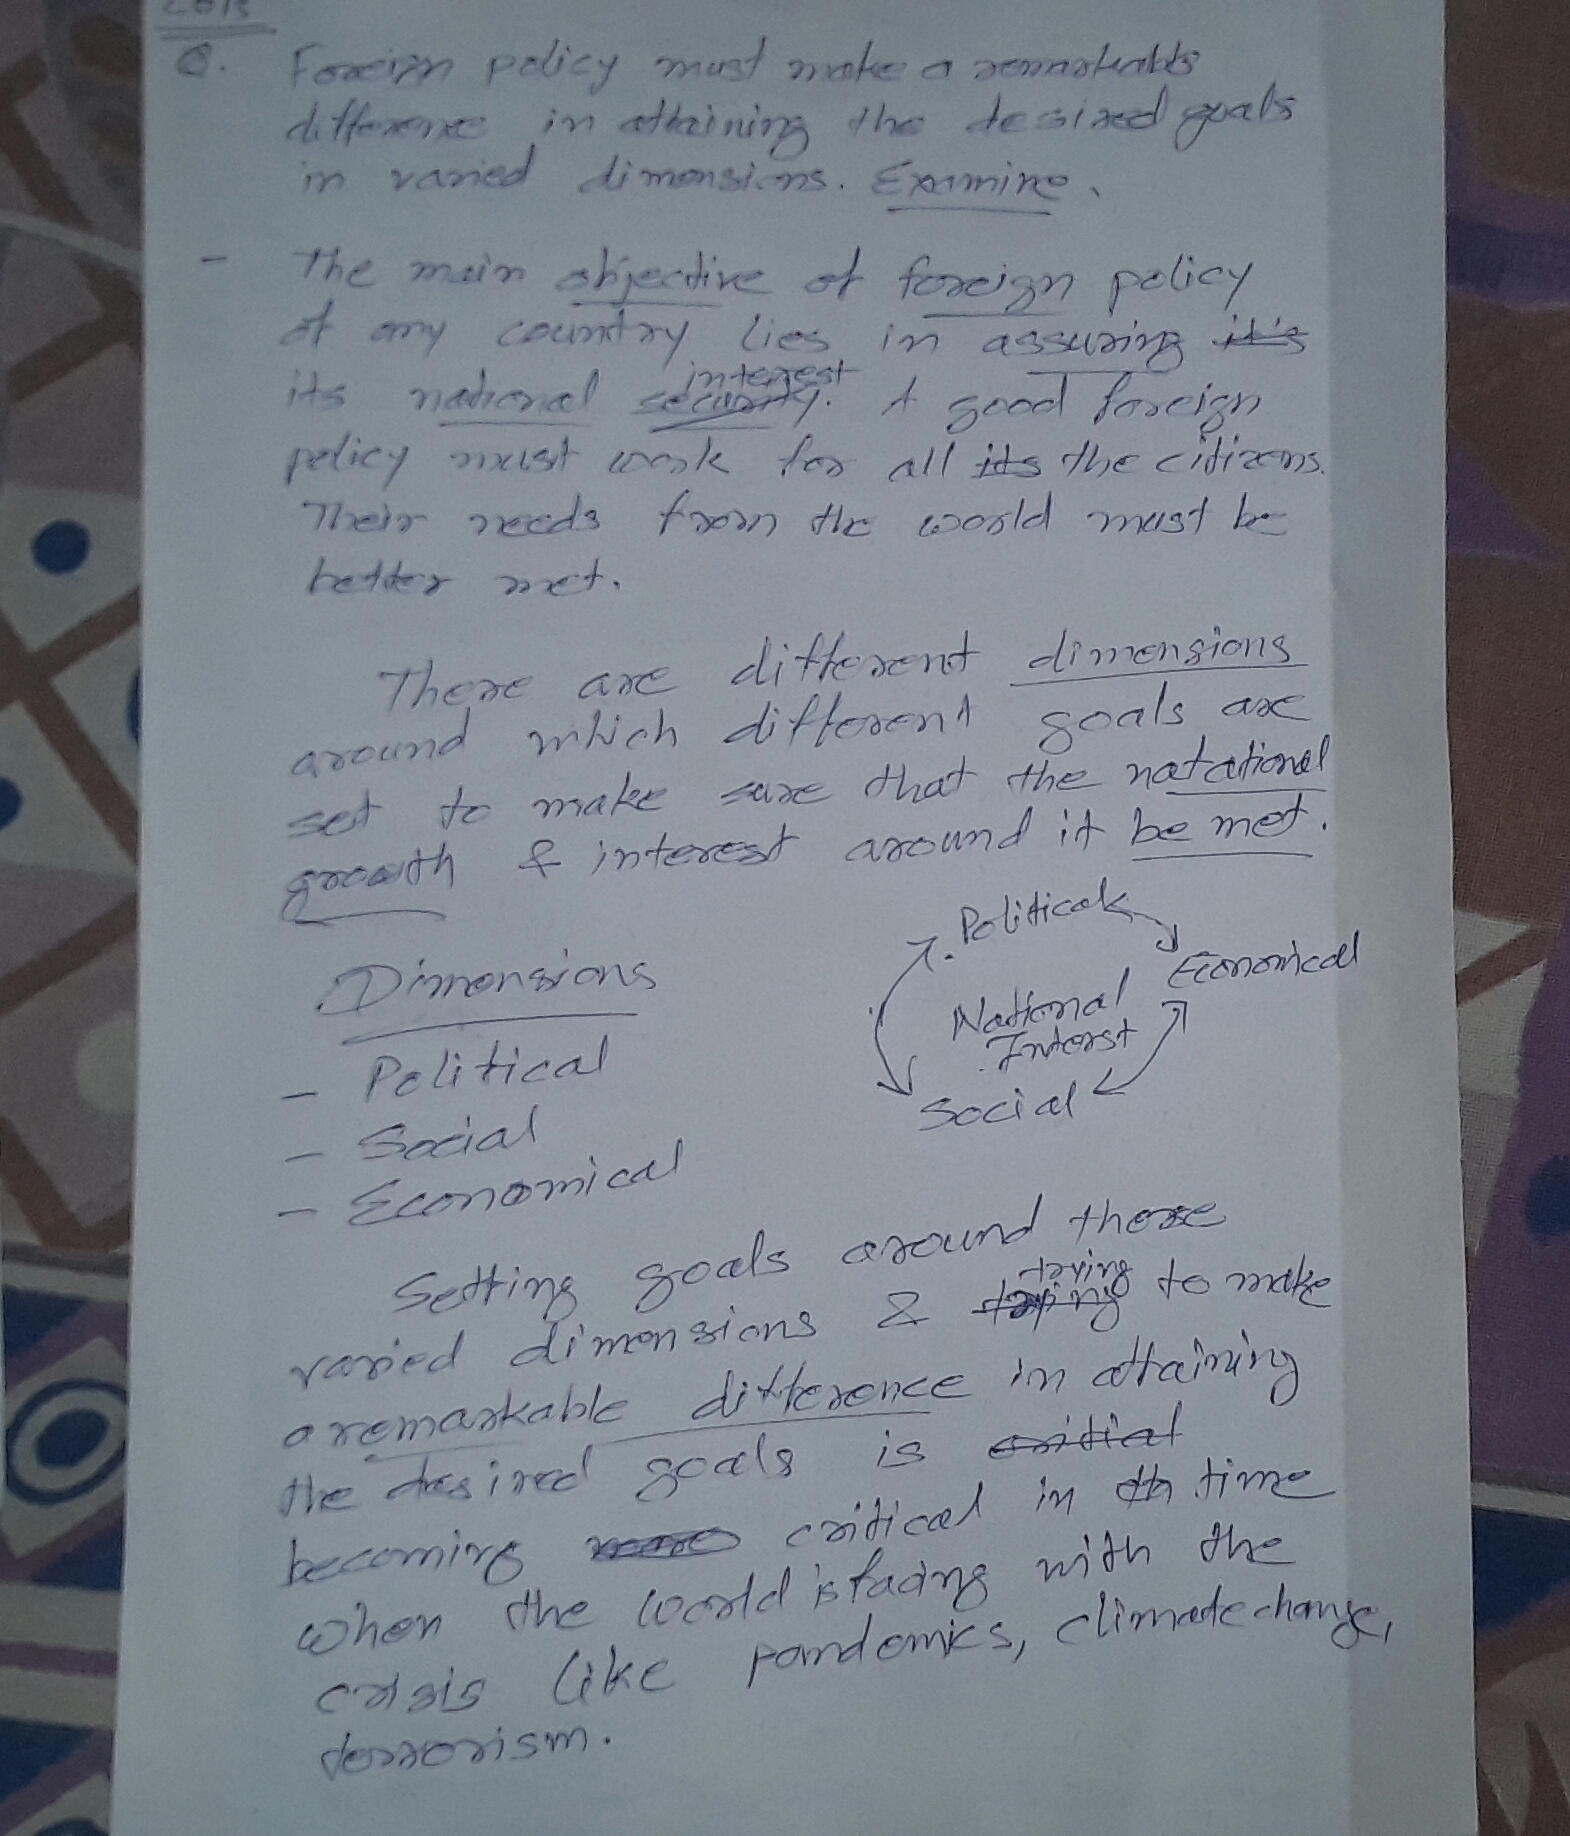 Q. Foreign policy must make a remarkable
difference in attaining the desired goals
in varied dimensions. Examine.
- The main objective of foreign policy
of any country lies in assuring it's
its national security. interest A good foreign
policy must work for all its the citizens.
Their needs from the world must be
better met.
There are different dimensions
around which different goals are
set to make sure that the natational
growth & interest around it be met.
Dimensions
- Political
- Social
- Economical
Political
Economical
National
Interst
Social
Setting goals around these
varied dimensions & trying to make
a remarkable difference in attaining
the desired goals is critial
becoming critical in time
when the world is facing with the
crisis like pandemics, climate change,
terrorism.